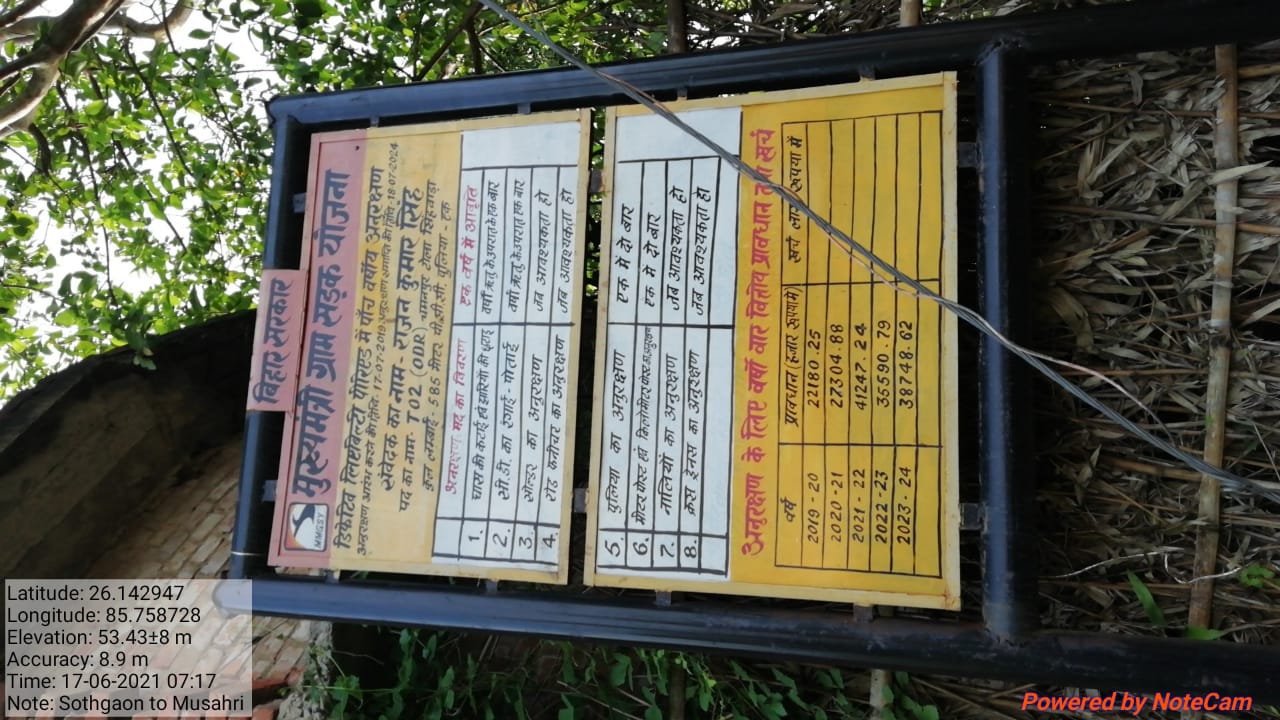 बिहार सरकार
MMGSY
मुख्यमंत्री ग्राम सड़क योजना
डिफेक्टिव लिएबिल्टी पीरिएड में पाँच वर्षीय अनुरक्षण
अनुरक्षण आरंभ करने की तिथि:- 17-07-2019, अनुरक्षण समाप्ति की तिथि:-18-07-2024
संवेदक का नाम:- राजन कुमार सिंह
पद का नाम:- T02 (ODR) टोला
कुल लम्बाई:- 585 मीटर पी.सी.सी. पुलिया - एक
अनुरक्षण मद का विवरण एक वर्ष में आवृति
1. घास की कटाई एवं झाड़ियों की छटाई वर्षा ऋतु के उपरांत एक बार
2. सी.डी. का रंगाई-पोताई वर्षा ऋतु के उपरांत एक बार
3. सोल्डर का अनुरक्षण जब आवश्यकता हो
4. रोड फर्नीचर का अनुरक्षण जब आवश्यकता हो
5. पुलिया का अनुरक्षण एक में दो बार
6. मीटर पोस्ट एवं किलोमीटर पोस्ट अनुरक्षण एक में दो बार
7. नालियों का अनुरक्षण जब आवश्यकता हो
8. क्रस ड्रेनस का अनुरक्षण जब आवश्यकता हो
अनुरक्षण के लिए वर्षो वार वित्तीय प्रावधान एवं खर्च
वर्ष प्रावधान (हजार रूपयामें) खर्च लाख रूपया में
2019-20 22180.25
2020-21 27304.88
2021-22 41247.24
2022-23 35590.79
2023-24 38748.62
Latitude: 26.142947
Longitude: 85.758728
Elevation: 53.43±8 m
Accuracy: 8.9 m
Time: 17-06-2021 07:17
Note: Sothgaon to Musahri
Powered by NoteCam